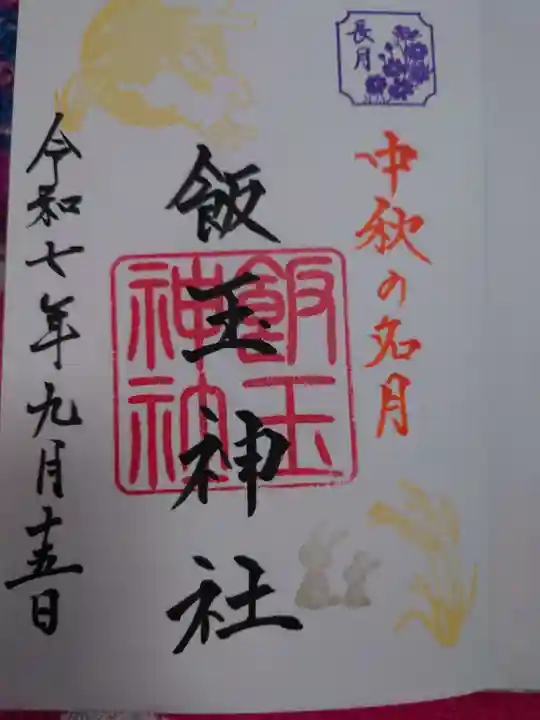 長月
中秋の名月
飯玉神社
飯玉
神社
令和七年九月十五日